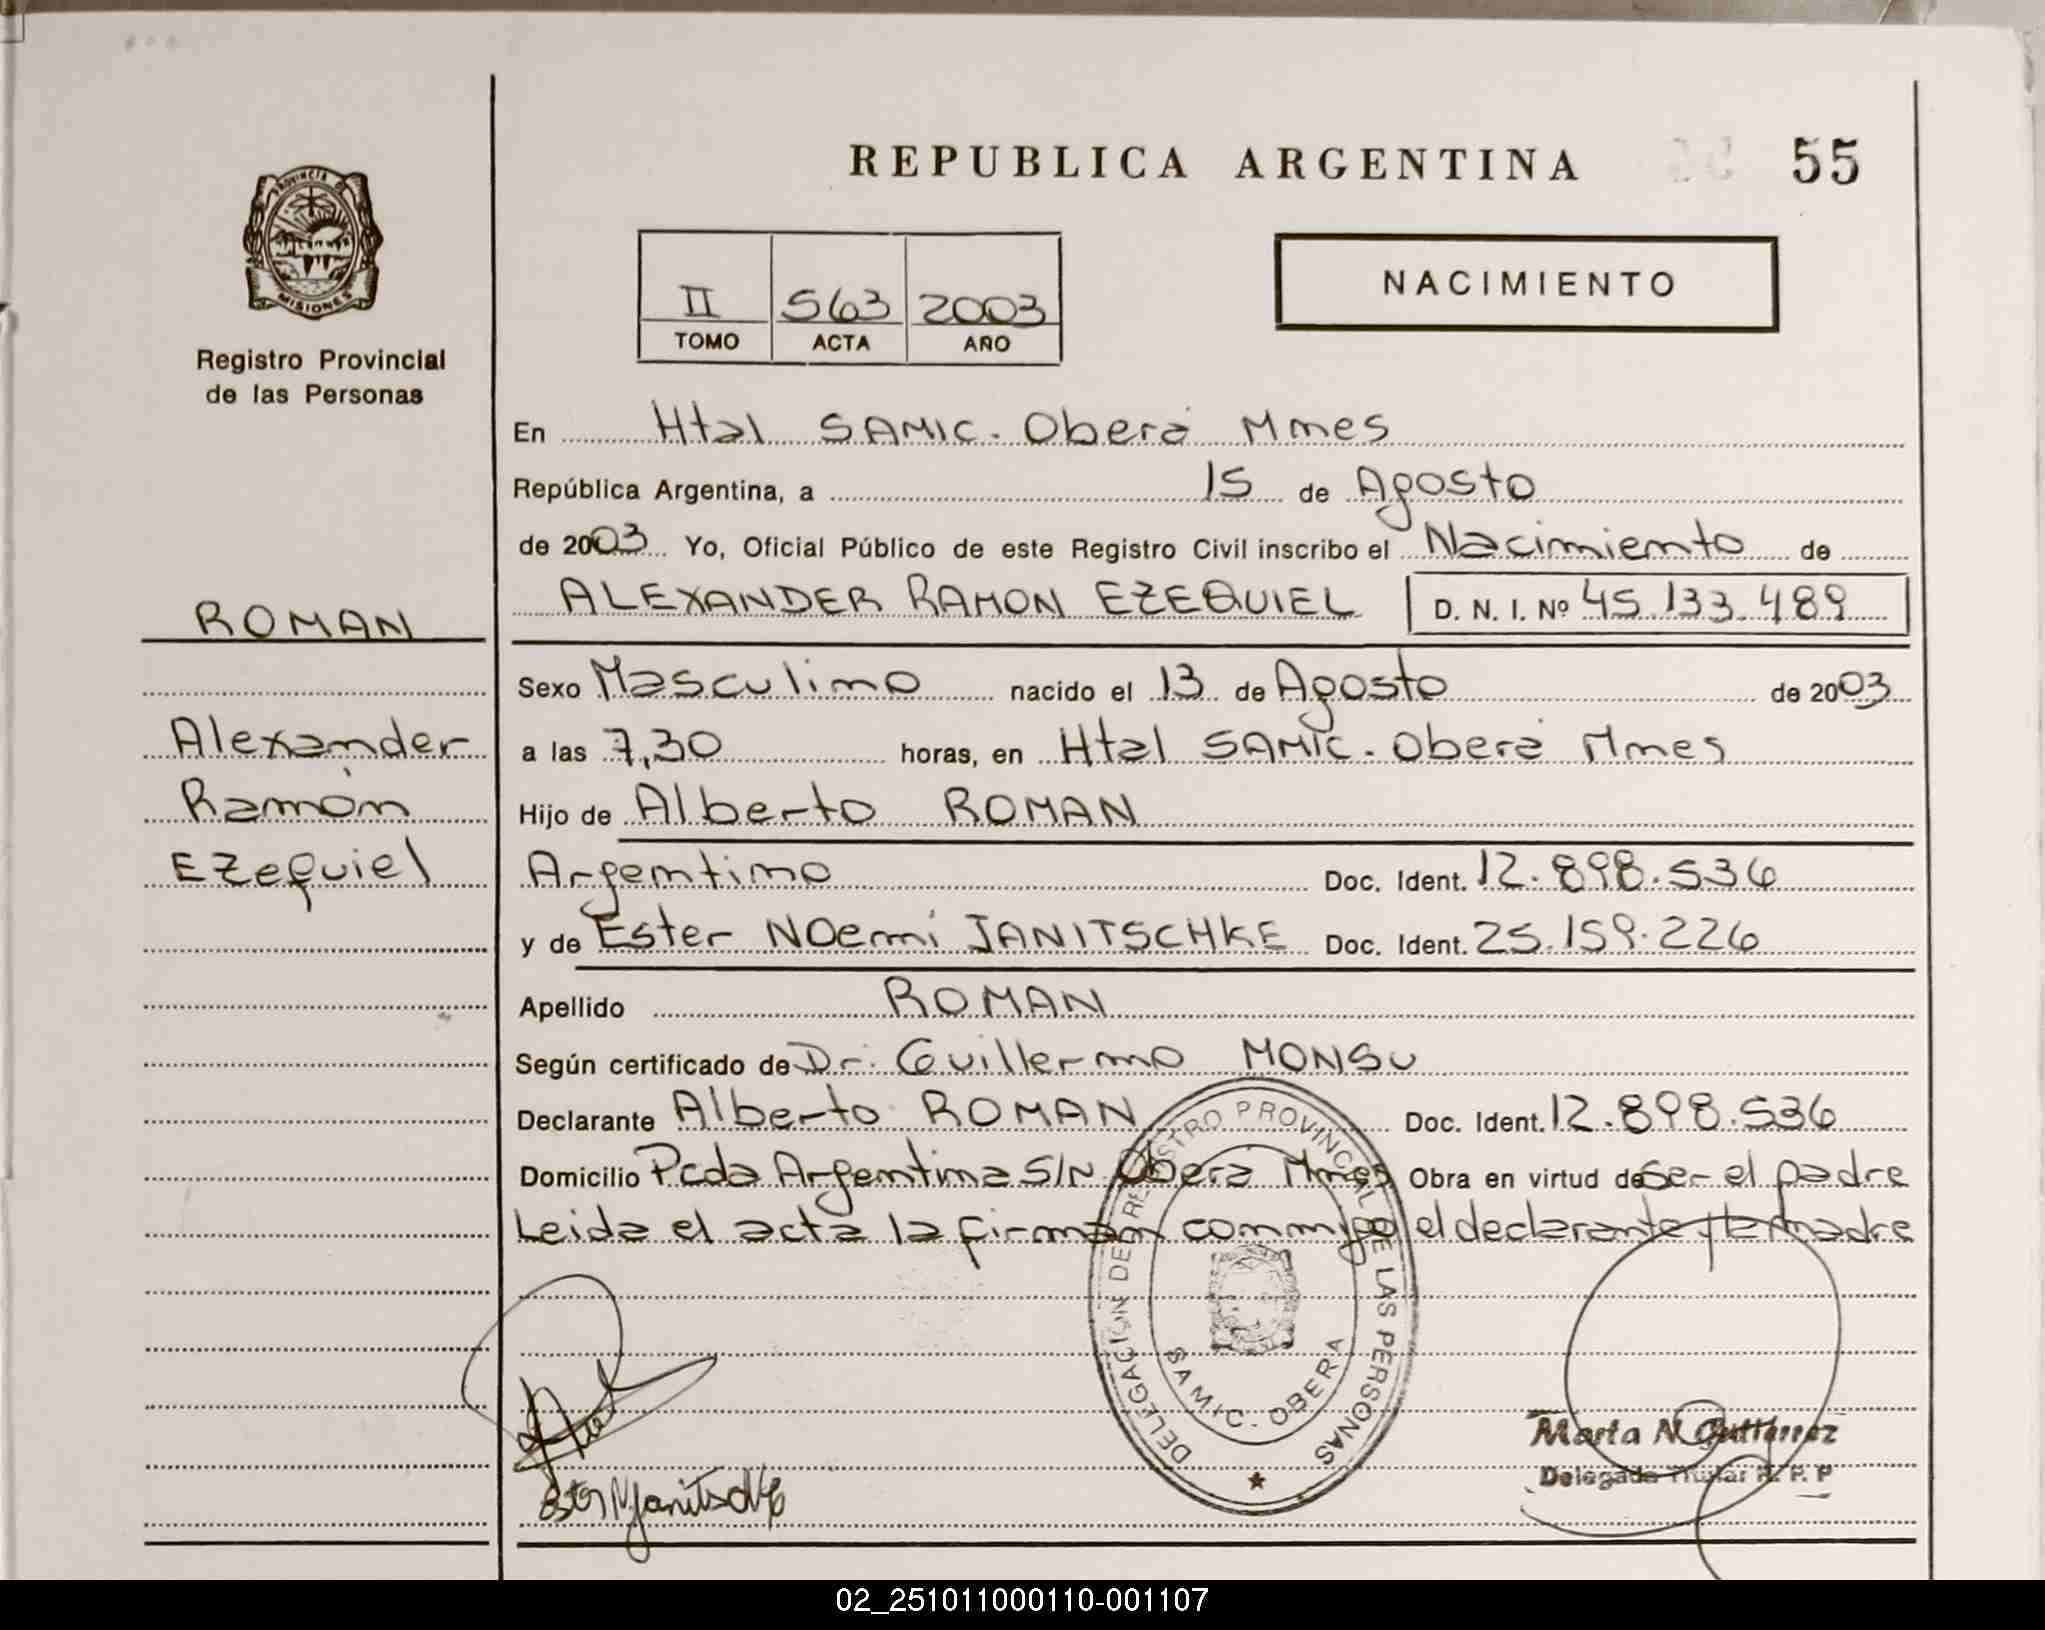 REPUBLICA ARGENTINA 55
PROVINCIA DE
MISIONES
Registro Provincial
de las Personas
II 563 2003
TOMO ACTA AÑO
NACIMIENTO
En Htal SAMIC. Oberá Mnes
República Argentina, a 15 de Agosto
de 2003 Yo, Oficial Público de este Registro Civil inscribo el Nacimiento de
ALEXANDER RAMON EZEQUIEL D. N. I. Nº 45.133.489
ROMAN
Alexander
Ramón
Ezequiel
Sexo Masculino nacido el 13 de Agosto de 2003
a las 7,30 horas, en Htal SAMIC. Oberá Mnes
Hijo de Alberto ROMAN
Argentino Doc. Ident. 12.898.536
y de Ester NOemi JANITSCHKE Doc. Ident. 25.159.226
Apellido ROMAN
Según certificado de Dr. Guillermo MONSU
Declarante Alberto ROMAN Doc. Ident. 12.898.536
Domicilio Pcda Argentina S/N Obera Mnes Obra en virtud de Ser el padre
Leida el acta la firman conmigo el declarante y la madre
DELEGACION DEL REGISTRO PROVINCIAL DE LAS PERSONAS
SAMIC. OBERA
Marta N. Gutierrez
Delegada Titular R. P. P
02_251011000110-001107